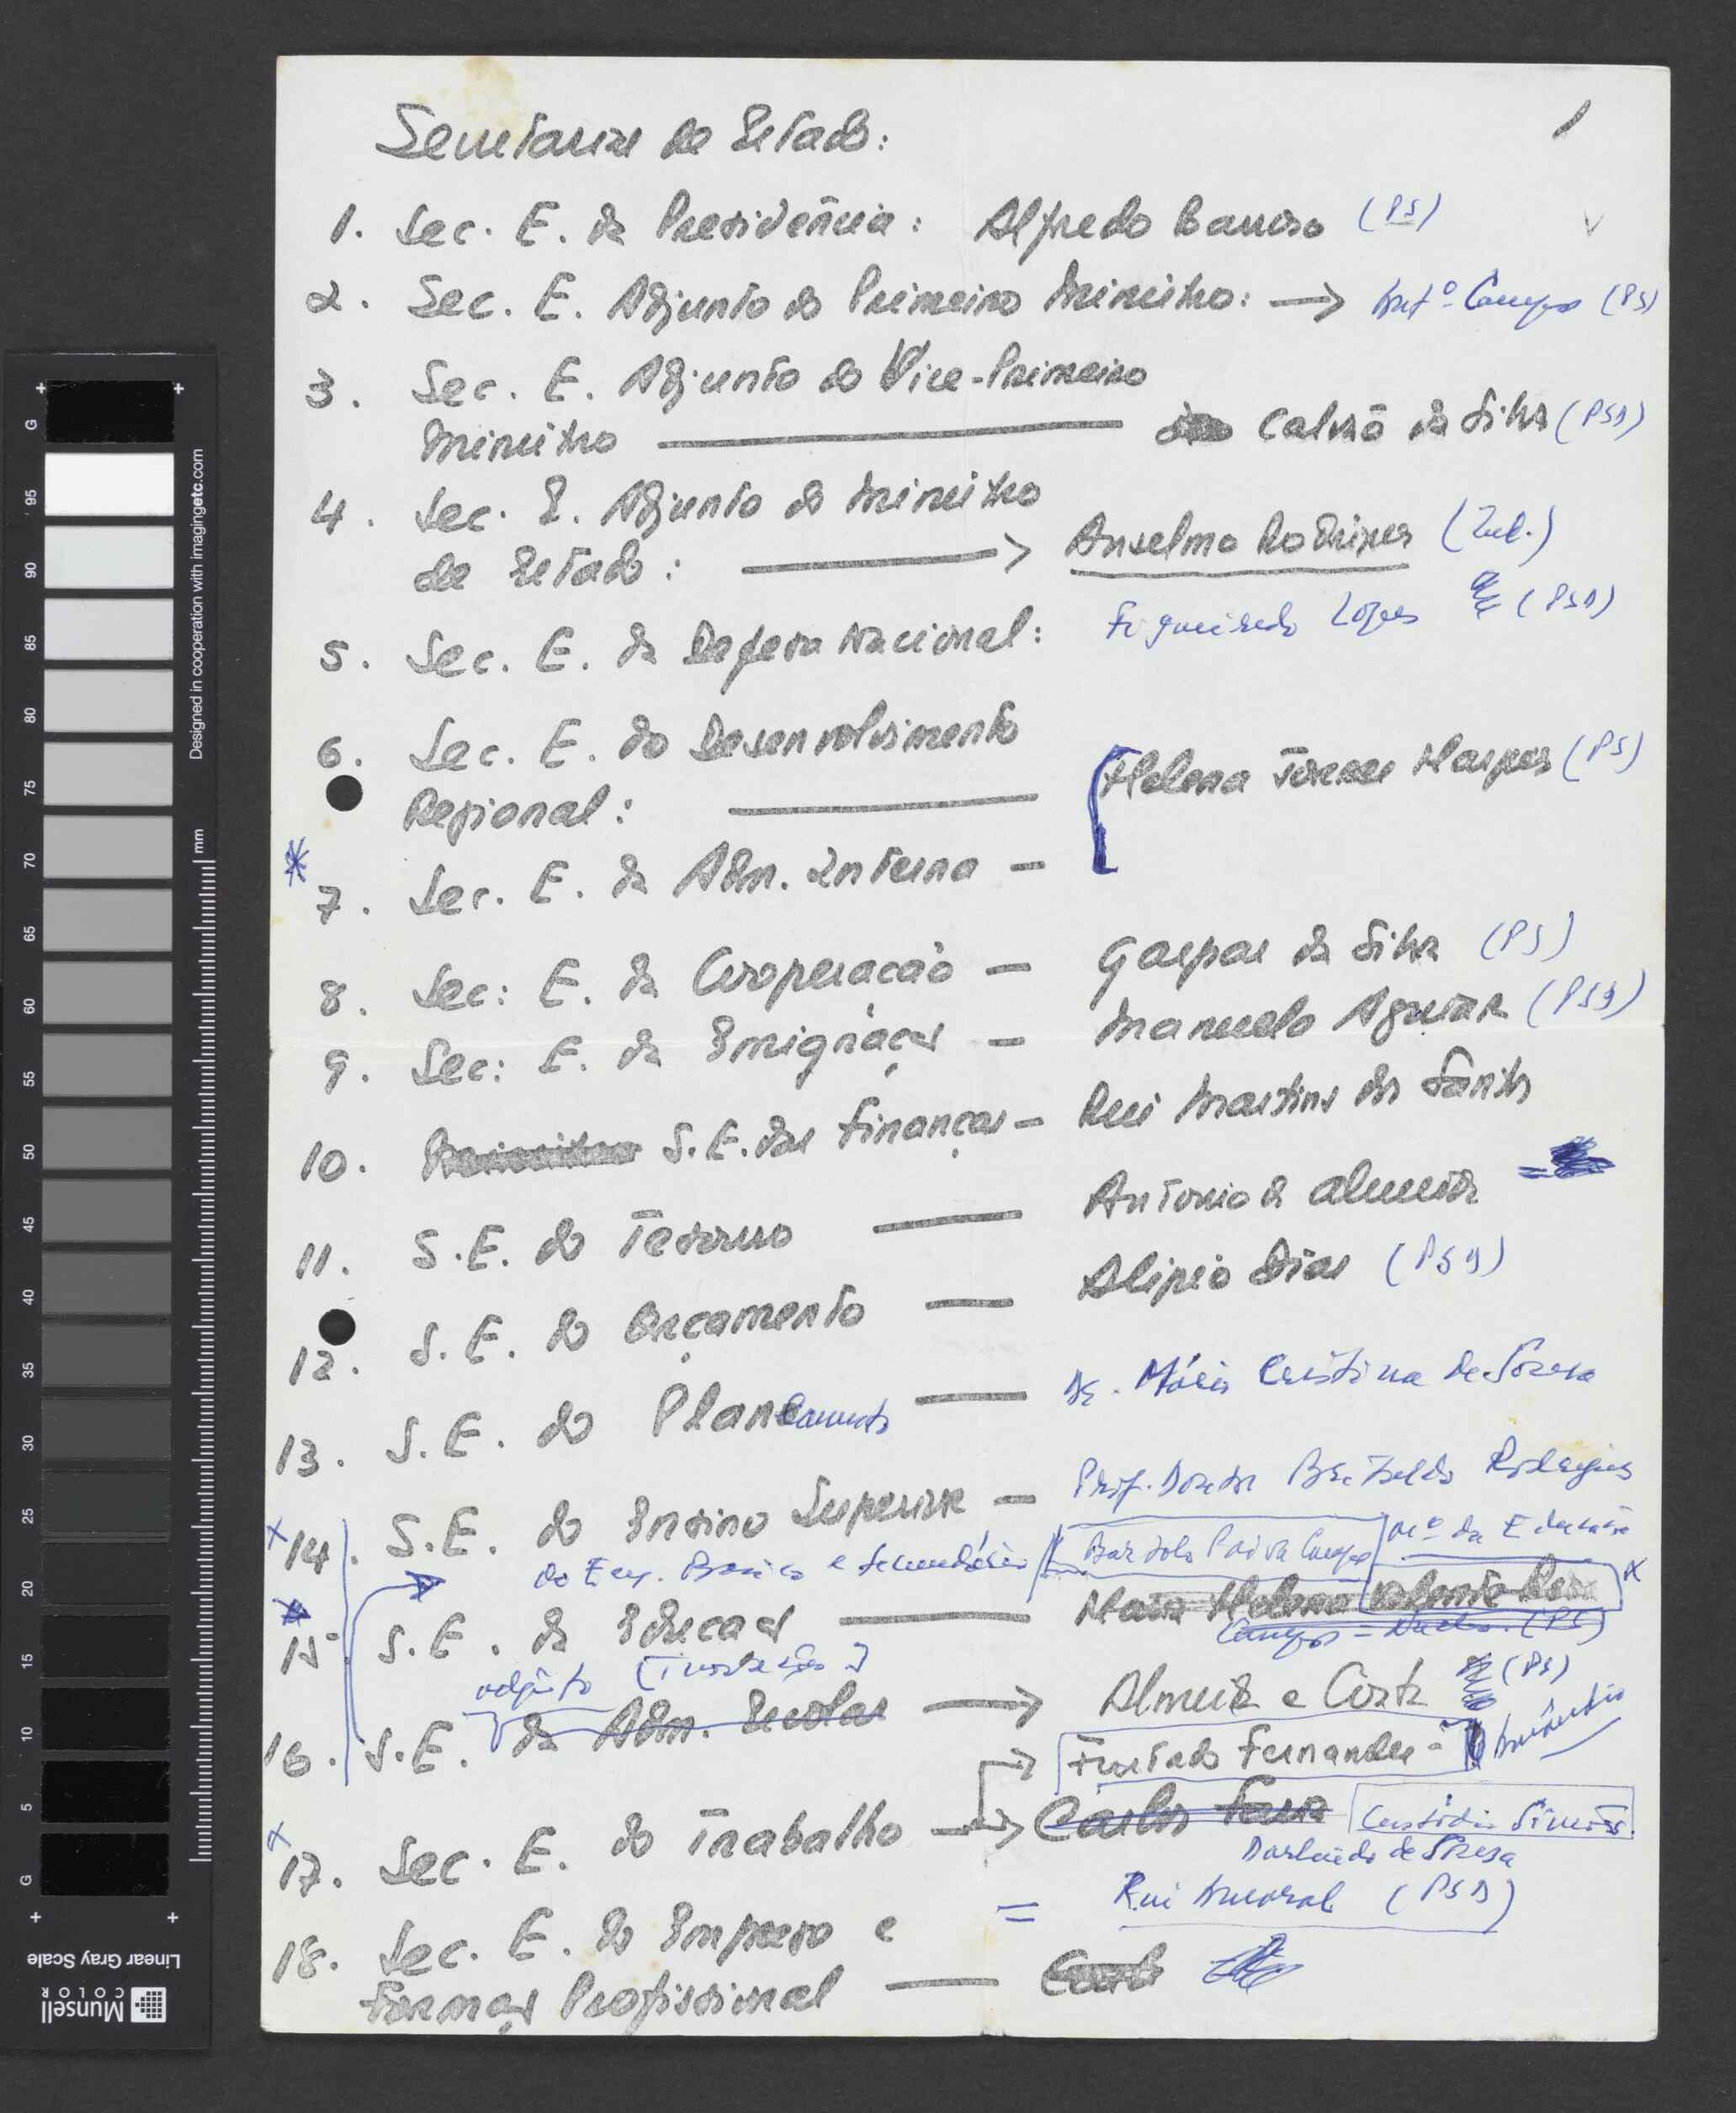 Secretarias de Estado:
1
1. Sec. E. da Presidência: Alfredo Barroso (PS)
2. Sec. E. Adjunto do Primeiro Ministro: → Antº Campos (PS)
3. Sec. E. Adjunto do Vice-Primeiro
Ministro — Calvão da Silva (PSD)
4. Sec. E. Adjunto do Ministro
de Estado: → Anselmo Rodrigues (Ind.)
5. Sec. E. da Defesa Nacional: Figueiredo Lopes (PSD)
6. Sec. E. do Desenvolvimento
Regional: — Helena Torres Marques (PS)
7. Sec. E. da Adm. Interna —
8. Sec: E. da Cooperação — Gaspar da Silva (PS)
9. Sec: E. da Emigração — Manuela Aguiar (PSD)
10. S.E. das Finanças — Rui Martins dos Santos
11. S.E. do Tesouro — Antonio de Almeida
12. S.E. do Orçamento — Alipio Dias (PSD)
13. S.E. do Planeamento — Dr. Mário Cristina de Sousa
14. S.E. do Ensino Superior — Prof. Doutor Rodrigues
do Ens. Basico e Secundário Bartolo Paiva Campos Mº da Educação
15. S.E. da Educação — Maria Helena Valente Rosa
Campos (PS)
adjunto
16. S.E. da Adm. Escolar → Almeida e Costa (PS)
Furtado Fernandes
17. Sec. E. do Trabalho → Carlos Custódio Simões
de Sousa
= Rui Amaral (PSD)
18. Sec. E. do Emprego e
Formação Profissional —
Designed in cooperation with imagingetc.com
mm
G 95 90 85 80 75 70 65 60 55 50 45 40 35 30 25 20 15 10 5 G
Linear Gray Scale
Munsell
COLOR